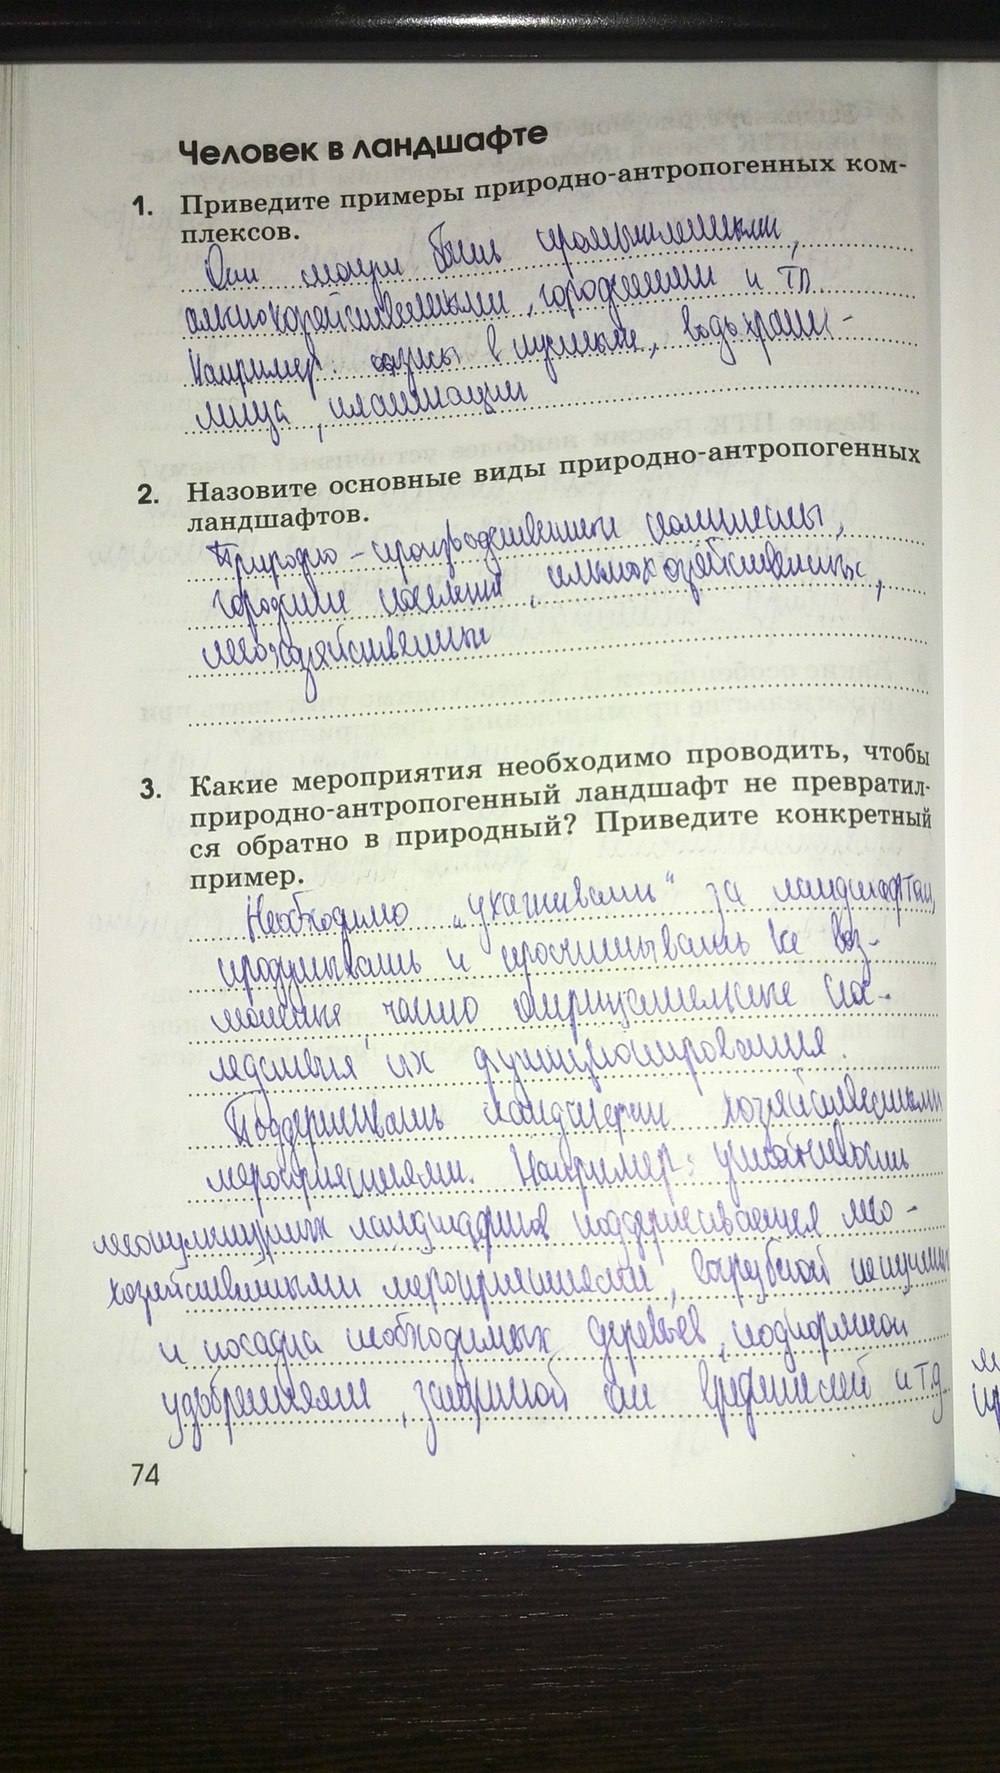 Человек в ландшафте
1. Приведите примеры природно-антропогенных ком-
плексов.
Они могут быть промышленными,
сельскохозяйственными, городскими и тп
Например: оазисы в пустыне, водохрани-
лища, плантации
2. Назовите основные виды природно-антропогенных
ландшафтов.
Природно-производственные комплексы,
городские поселения, сельскохозяйственные,
лесохозяйственные
3. Какие мероприятия необходимо проводить, чтобы
природно-антропогенный ландшафт не превратил-
ся обратно в природный? Приведите конкретный
пример.
Необходимо „ухаживать" за ландшафтам,
продумывать и просчитывать все воз-
можные, часто отрицательные пос-
ледствия их функционирования.
Поддерживать ландшафты хозяйственными
мероприятиями. Например: устойчивость
лесокультурных ландшафтов поддерживается лесо-
хозяйственными мероприятиями, вырубкой
и посадка необходимых деревьев, подкормкой
удобрениями, защитой от вредителей и т.д.
74